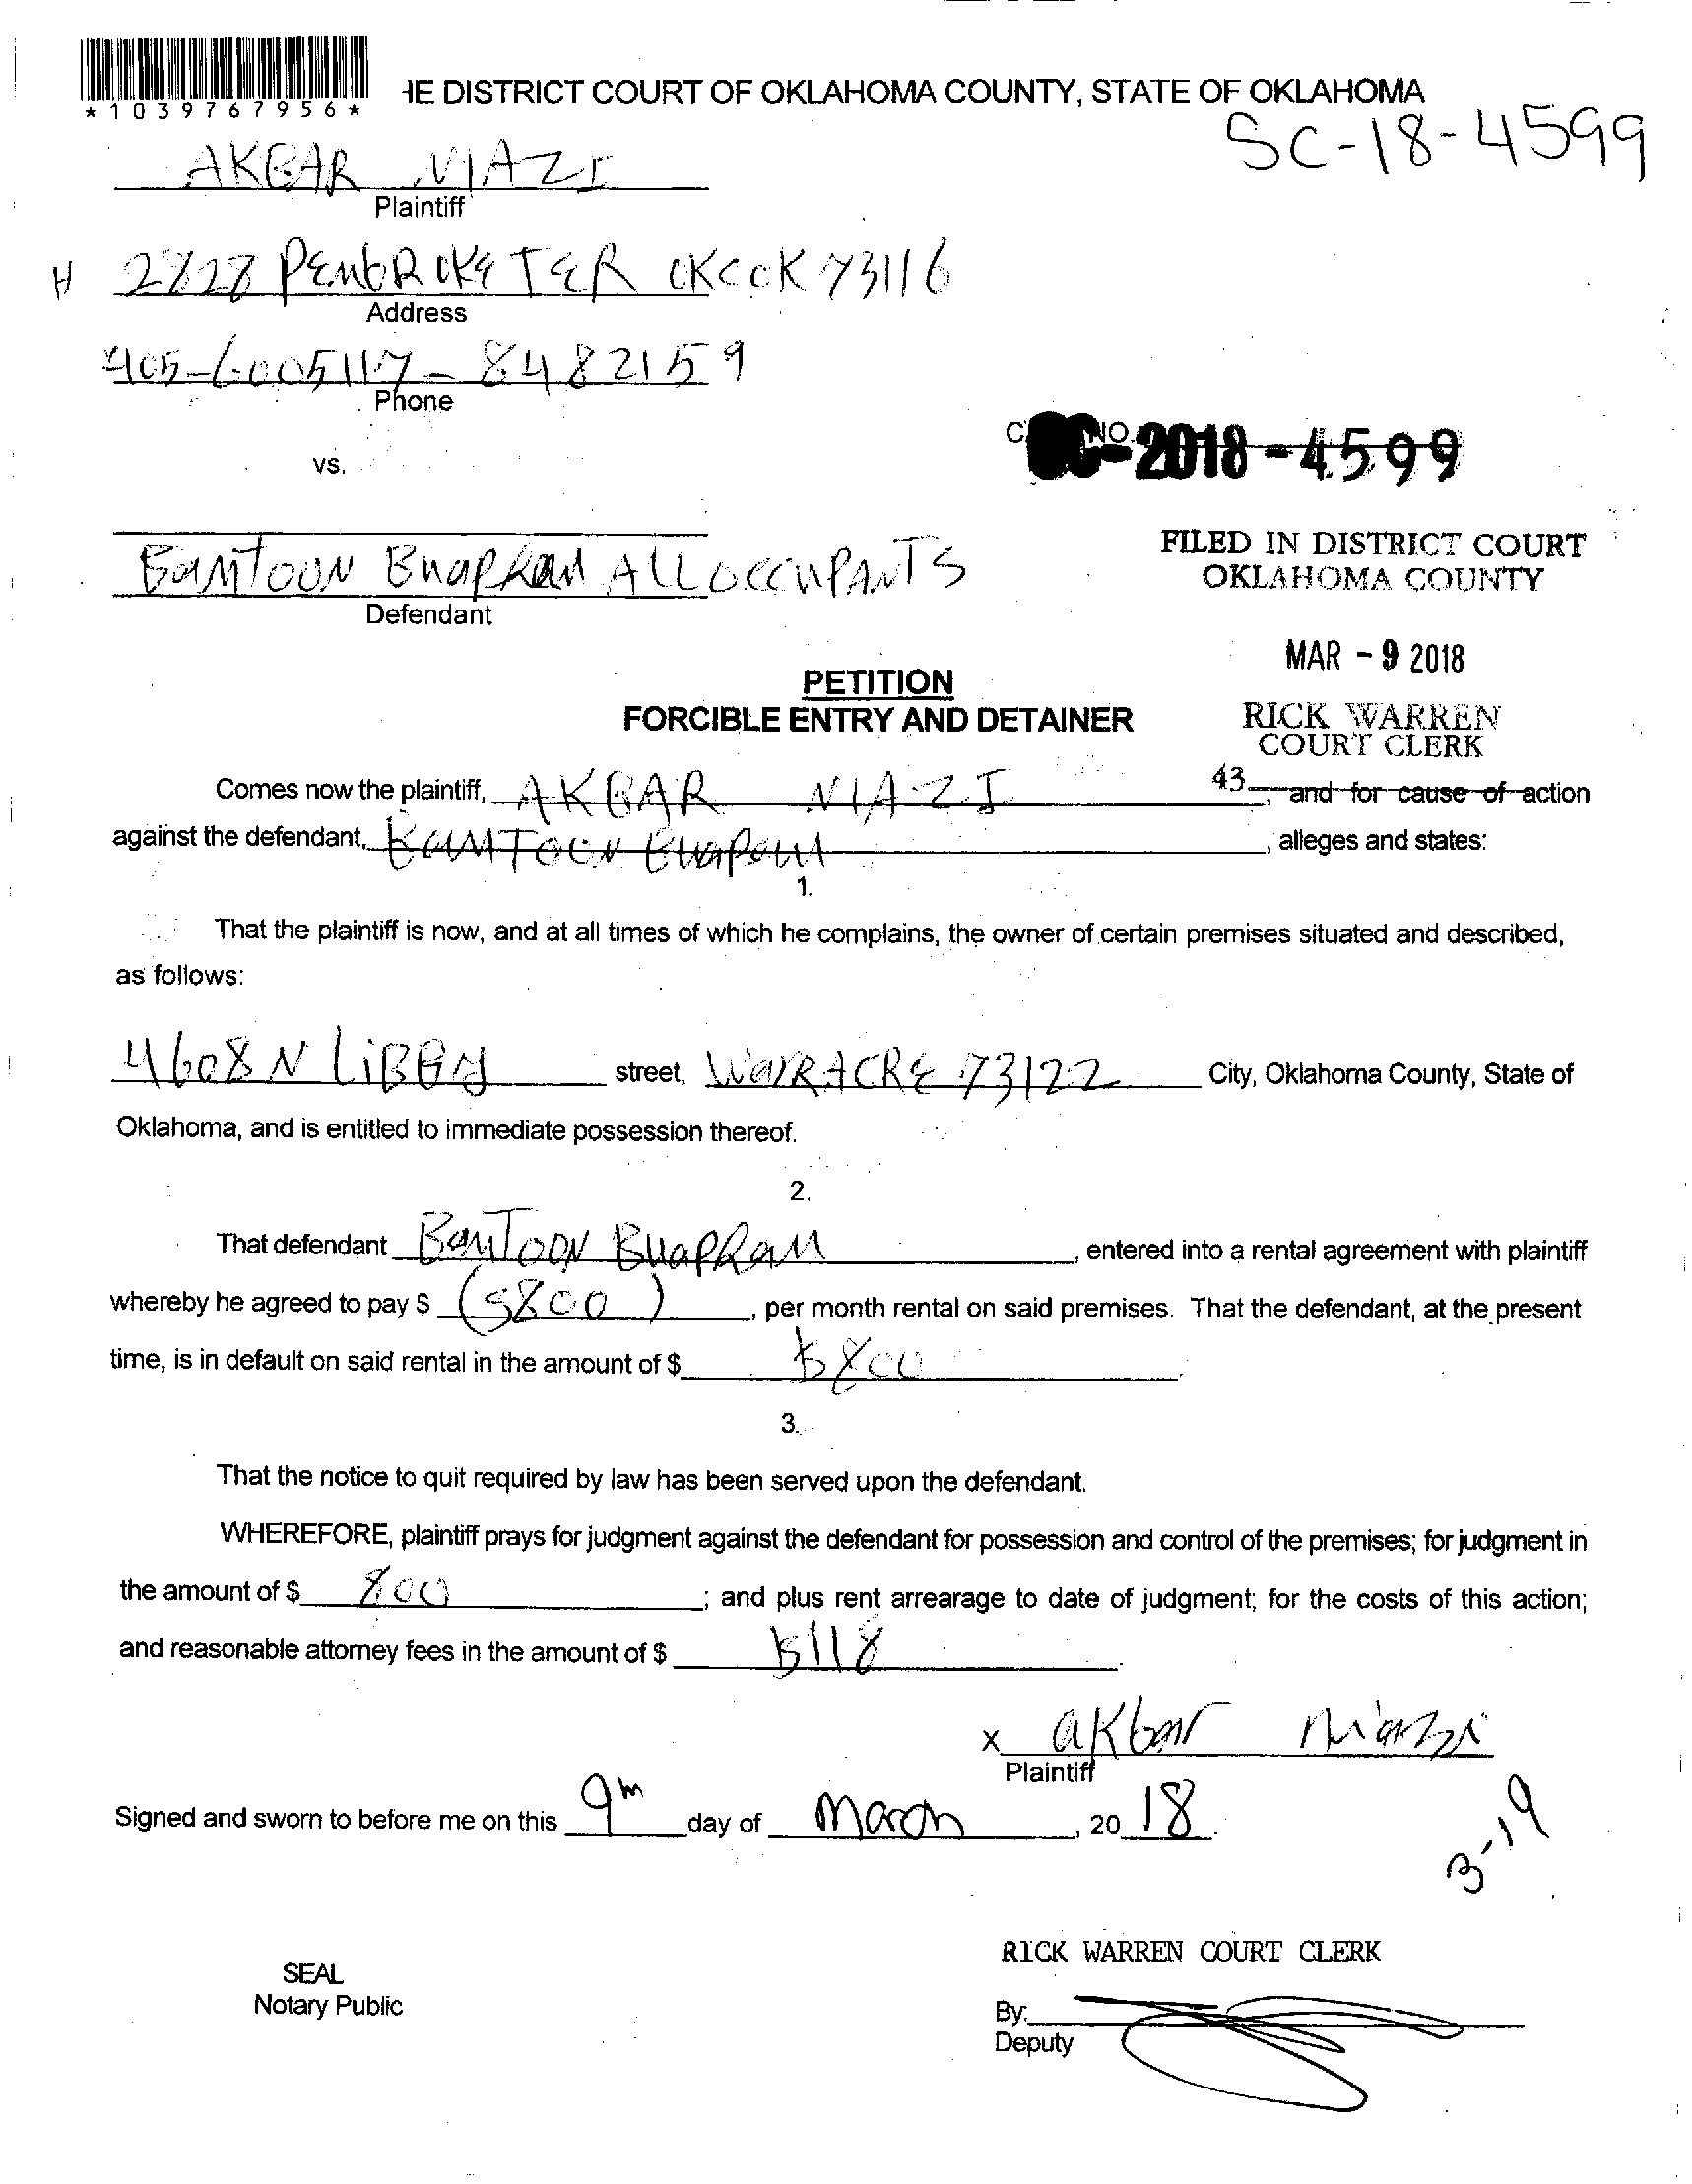 *1039767956*
HE DISTRICT COURT OF OKLAHOMA COUNTY, STATE OF OKLAHOMA
SC-18-4599
AKBAR NIAZI
Plaintiff
H 2828 PEMBROKE TER OKC OK 73116
Address
405-6005117-8482159
Phone
NO. 2018-4599
vs.
FILED IN DISTRICT COURT
OKLAHOMA COUNTY
BamTOON BuapRam ALL OCCUPANTS
Defendant
MAR - 9 2018
PETITION
FORCIBLE ENTRY AND DETAINER
RICK WARREN
COURT CLERK
43
Comes now the plaintiff, AKBAR NIAZI, and for cause of action
against the defendant, , alleges and states:
1.
That the plaintiff is now, and at all times of which he complains, the owner of certain premises situated and described,
as follows:
4608 N LiBBY street, WaRRACRE 73122 City, Oklahoma County, State of
Oklahoma, and is entitled to immediate possession thereof.
2.
That defendant BamTOON BuapRam, entered into a rental agreement with plaintiff
whereby he agreed to pay $ ($800), per month rental on said premises. That the defendant, at the present
time, is in default on said rental in the amount of $ $800.
3.
That the notice to quit required by law has been served upon the defendant.
WHEREFORE, plaintiff prays for judgment against the defendant for possession and control of the premises; for judgment in
the amount of $ 800; and plus rent arrearage to date of judgment; for the costs of this action;
and reasonable attorney fees in the amount of $ $118.
x akbar niazi
Plaintiff
Signed and sworn to before me on this 9th day of March, 2018.
3-19
RICK WARREN COURT CLERK
SEAL
Notary Public
By:
Deputy